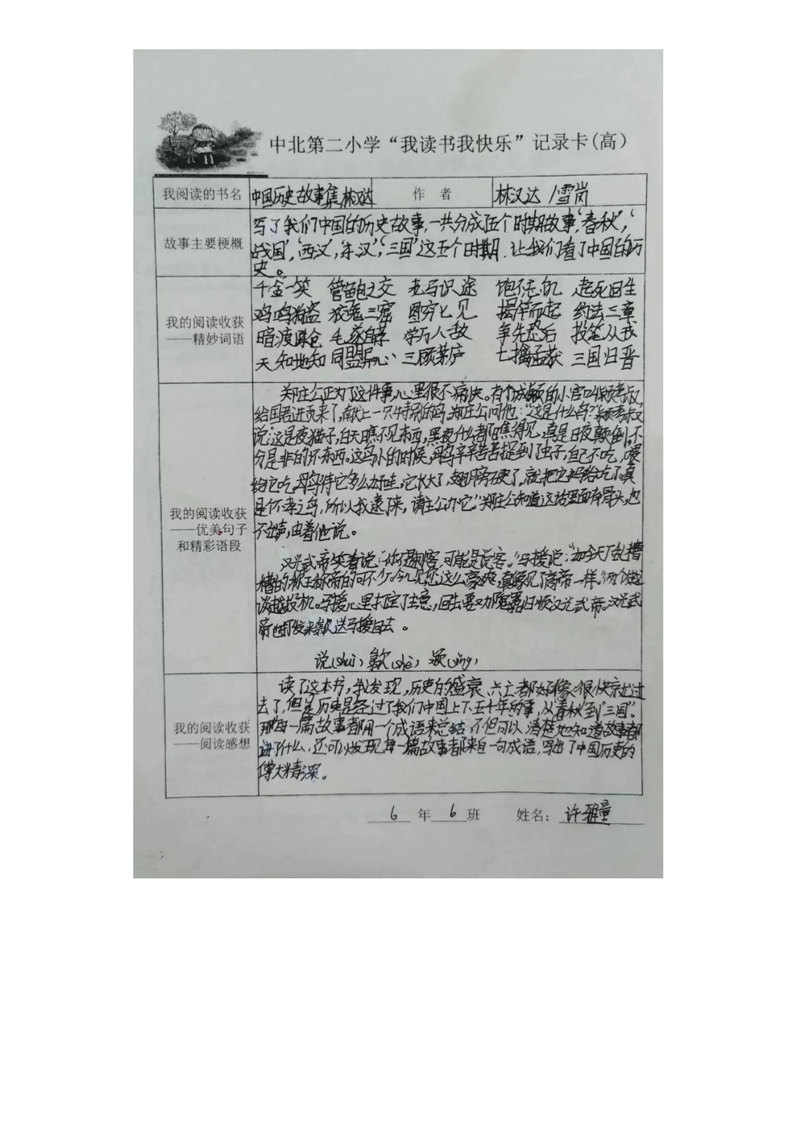 中北第二小学“我读书我快乐”记录卡(高)
我阅读的书名 中国历史故事集林汉达 作者 林汉达/雪岗
故事主要梗概
写了我们中国的历史故事,一共分成五个时期故事,‘春秋’,‘
战国’,‘西汉’,‘东汉’,‘三国’这五个时期,让我们看了中国的历
史。
我的阅读收获
——精妙词语
千金一笑 管鲍之交 老马识途 饱不忘饥 起死回生
鸡鸣狗盗 狡兔三窟 图穷匕见 揭竿而起 约法三章
暗渡陈仓 毛遂自荐 学万人敌 争先恐后 投笔从戎
天知地知 同盟异心 三顾茅庐 七擒孟获 三国归晋
我的阅读收获
——优美句子
和精彩语段
郑庄公正为了这件事,心里很不痛快。有个城颍的小官叫颍考叔,
给国君进贡来了,献上一只特别的鸟,郑庄公问他:“这是什么鸟?”颍考叔
说:“这是夜猫子,白天瞧不见东西,黑夜什么都瞧得见,真是日夜颠倒,不
分是非的坏东西。这鸟小的时候,母鸟辛辛苦苦捉到了虫子,自己不吃,喂
给它吃,母鸟待它多么好哇,它长大了,翅膀硬了,就把它妈给吃了,真
是个不孝之鸟,所以我逮了来,请主公办它。”郑庄公知道这话里面有骨头,也
不出声,由着他说。
汉光武帝笑着说:“你不是刺客,可能是说客。”马援说:“如今天下乱糟
糟的,称王称帝的可不少。今儿见您这么豪爽,真像见了高帝一样。”两个人越
谈越投机。马援心里打定了主意,回去要劝隗嚣归顺汉光武帝。汉光武
帝也打发来歙送马援回去。
说(shuì) 歙(shè) 颍(yǐng)
我的阅读收获
——阅读感想
读了这本书,我发现,历史的盛衰、兴亡都好像很快就过
去了,但是历史是经过了我们中国上下五千年的事,从‘春秋’到‘三国’。
那每一篇故事都用一个成语来总结,不但可以清楚地知道故事都
讲了什么,还可以发现每一篇故事都来自一句成语,写出了中国历史的
博大精深。
6 年 6 班 姓名: 许雅童